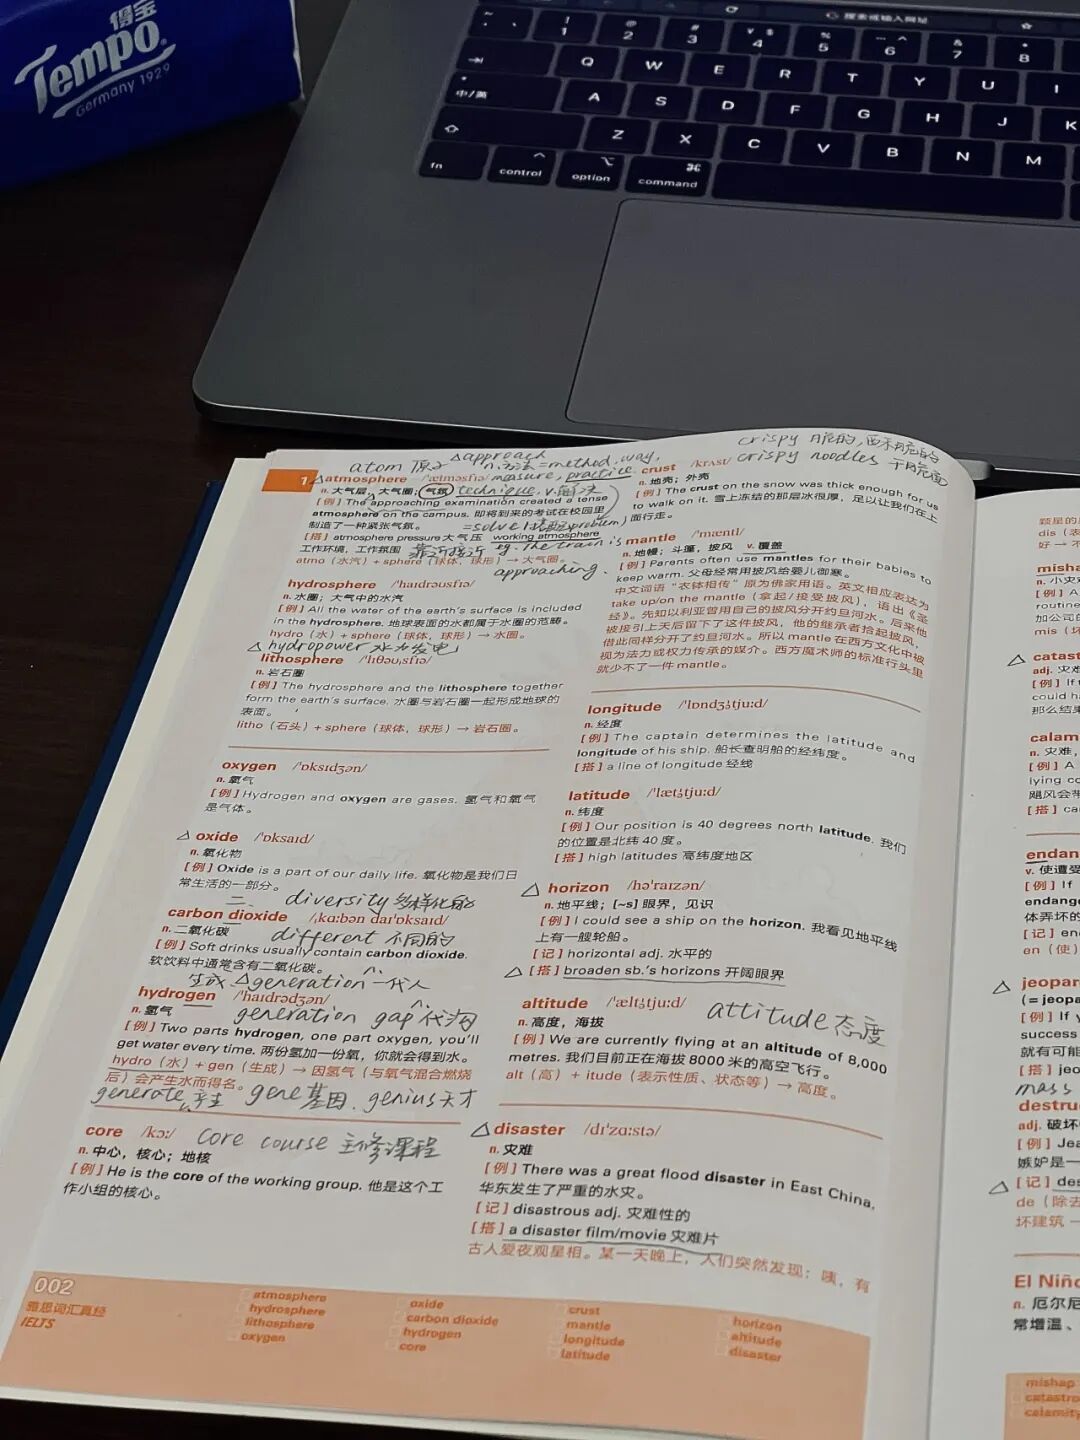 得宝
Tempo
Germany 1929
搜索或输入网址
! 1
@ 2
# 3
¥ $ 4
% 5
^ 6
& 7
* 8
Q W E R T Y U I
中/英 A S D F G H J K
Z X C V B N M
fn control option command
atom 原子
approach
n.方法=method.way,
measure, practice.
technique, v.解决
=solve(搭配problem)
靠近接近 eg. The train is
approaching.
1
atmosphere /ˈætməsfɪə/
n. 大气层,大气圈;气氛
[例] The approaching examination created a tense
atmosphere on the campus. 即将到来的考试在校园里
制造了一种紧张气氛。
[搭] atmosphere pressure 大气压 working atmosphere
工作环境,工作氛围
atmo(水汽)+ sphere(球体,球形)→ 大气圈。
hydrosphere /ˈhaɪdrəʊsfɪə/
n. 水圈;大气中的水汽
[例] All the water of the earth's surface is included
in the hydrosphere. 地球表面的水都属于水圈的范畴。
hydro(水)+ sphere(球体,球形)→ 水圈。
hydropower 水力发电
lithosphere /ˈlɪθəʊˌsfɪə/
n. 岩石圈
[例] The hydrosphere and the lithosphere together
form the earth's surface. 水圈与岩石圈一起形成地球的
表面。
litho(石头)+ sphere(球体,球形)→ 岩石圈。
oxygen /ˈɒksɪdʒən/
n. 氧气
[例] Hydrogen and oxygen are gases. 氢气和氧气
是气体。
oxide /ˈɒksaɪd/
n. 氧化物
[例] Oxide is a part of our daily life. 氧化物是我们日
常生活的一部分。
二 diversity 多样化
carbon dioxide /ˌkɑːbən daɪˈɒksaɪd/
n. 二氧化碳 different 不同的
[例] Soft drinks usually contain carbon dioxide.
软饮料中通常含有二氧化碳。
生成 generation n. 一代人
hydrogen /ˈhaɪdrədʒən/
n. 氢气 generation gap n. 代沟
[例] Two parts hydrogen, one part oxygen, you'll
get water every time. 两份氢加一份氧,你就会得到水。
hydro(水)+ gen(生成)→ 因氢气(与氧气混合燃烧
后)会产生水而得名。
generate v. 产生 gene 基因. genius 天才
core /kɔː/ core course 主修课程
n. 中心,核心;地核
[例] He is the core of the working group. 他是这个工
作小组的核心。
crispy 脆的,酥脆的
crispy noodles 干脆面
crust /krʌst/
n. 地壳;外壳
[例] The crust on the snow was thick enough for us
to walk on it. 雪上冻结的那层冰很厚,足以让我们在上
面行走。
mantle /ˈmæntl/
n. 地幔;斗篷,披风 v. 覆盖
[例] Parents often use mantles for their babies to
keep warm. 父母经常用披风给婴儿御寒。
中文词语“衣钵相传”原为佛家用语。英文相应表达为
take up/on the mantle(拿起/接受披风),语出《圣
经》。先知以利亚曾用自己的披风分开约旦河水。后来他
被接引上天后留下了这件披风,他的继承者拾起披风,
借此同样分开了约旦河水。所以 mantle 在西方文化中被
视为法力或权力传承的媒介。西方魔术师的标准行头里
就少不了一件 mantle。
longitude /ˈlɒndʒɪtjuːd/
n. 经度
[例] The captain determines the latitude and
longitude of his ship. 船长查明船的经纬度。
[搭] a line of longitude 经线
latitude /ˈlætɪtjuːd/
n. 纬度
[例] Our position is 40 degrees north latitude. 我们
的位置是北纬 40 度。
[搭] high latitudes 高纬度地区
horizon /həˈraɪzən/
n. 地平线;[~s] 眼界,见识
[例] I could see a ship on the horizon. 我看见地平线
上有一艘轮船。
[记] horizontal adj. 水平的
[搭] broaden sb.'s horizons 开阔眼界
altitude /ˈæltɪtjuːd/ attitude 态度
n. 高度,海拔
[例] We are currently flying at an altitude of 8,000
metres. 我们目前正在海拔 8000 米的高空飞行。
alt(高)+ itude(表示性质、状态等)→ 高度。
disaster /dɪˈzɑːstə/
n. 灾难
[例] There was a great flood disaster in East China.
华东发生了严重的水灾。
[记] disastrous adj. 灾难性的
[搭] a disaster film/movie 灾难片
古人爱夜观星相。某一天晚上,人们突然发现:咦,有
002
雅思词汇真经
IELTS
atmosphere
hydrosphere
lithosphere
oxygen
oxide
carbon dioxide
hydrogen
core
crust
mantle
longitude
latitude
horizon
altitude
disaster
颗星的
dis(表
好 → 不
misha
n. 小灾
[例] A
routine
加公司的
mis(坏
catast
adj. 灾难
[例] If
could ha
那么结果
calam
n. 灾难,
[例] A
lying co
飓风会带
[搭] ca
endan
v. 使遭受
[例] If
endange
体弄坏的
[记] en
en(使)
jeopar
(= jeopa
[例] If y
success
就有可能
[搭] jeo
mass
destru
adj. 破坏
[例] Jea
嫉妒是一
[记] des
de(除去
坏建筑 →
El Niño
n. 厄尔尼
常增温、
mishap
catastro
calamity